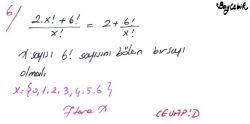 BayÇelik
6.)
2.x!+6! / x! = 2 + 6! / x!
x sayısı 6! sayısını bölen bir sayı
olmalı
x={0,1,2,3,4,5,6}
7 tane x
CEVAP:D